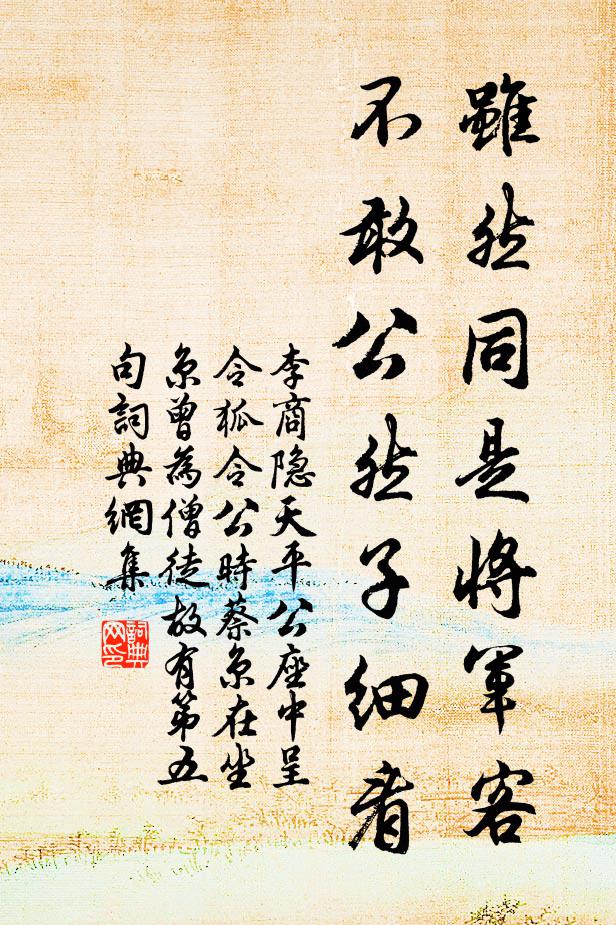 雖然同是將軍客
不敢公然子細看
李商隐天平公座中呈
令狐令公時蔡京在坐
京曾為僧徒故有第五
句詞典網集
詞典
网印